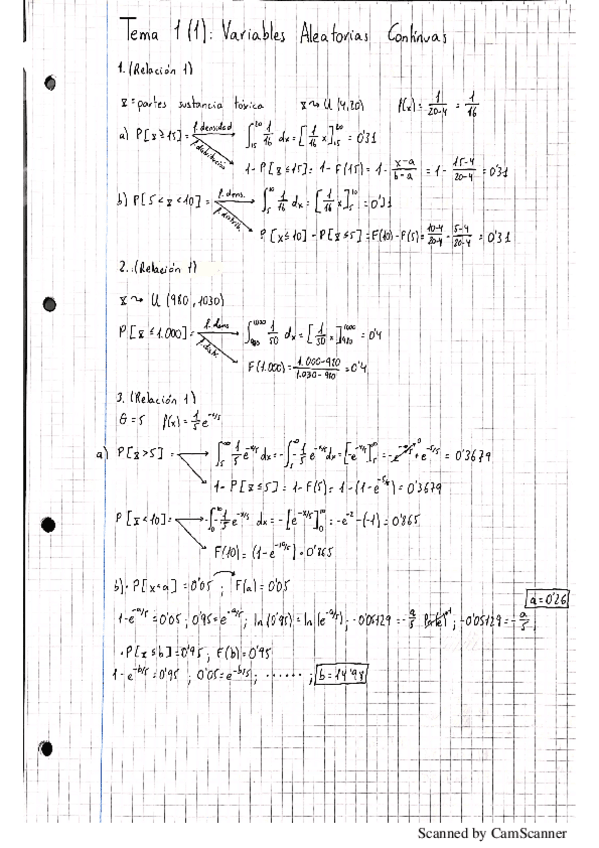 Tema 1 (1): Variables Aleatorias Continuas
1. (Relación 1)
X = partes sustancia tóxica X ~> U (4,20) f(x) = 1/(20-4) = 1/16
a) P[X ≥ 15] = f. densidad → ∫₁₅²⁰ 1/16 dx = [1/16 x]₁₅²⁰ = 0'31
f. distribución → 1 - P[X ≤ 15] = 1 - F(15) = 1 - (x-a)/(b-a) = 1 - (15-4)/(20-4) = 0'31
b) P[5 < X < 10] = f. dens. → ∫₅¹⁰ 1/16 dx = [1/16 x]₅¹⁰ = 0'31
f. distrib. → P[X ≤ 10] - P[X ≤ 5] = F(10) - F(5) = (10-4)/(20-4) - (5-4)/(20-4) = 0'31
2. (Relación 1)
X ~> U (980, 1030)
P[X ≤ 1.000] = f. dens → ∫₉₈₀¹⁰⁰⁰ 1/50 dx = [1/50 x]₉₈₀¹⁰⁰⁰ = 0'4
f. distr. → F(1.000) = (1.000-980)/(1.030-980) = 0'4
3. (Relación 1)
θ = 5 f(x) = 1/5 e^(-x/5)
a) P[X > 5] = → ∫₅^∞ 1/5 e^(-x/5) dx = -∫₅^∞ -1/5 e^(-x/5) dx = [-e^(-x/5)]₅^∞ = -e^(-∞/5) 0 + e^(-5/5) = 0'3679
→ 1 - P[X ≤ 5] = 1 - F(5) = 1 - (1 - e^(-5/5)) = 0'3679
P[X < 10] = → -∫₀¹⁰ -1/5 e^(-x/5) dx = -[e^(-x/5)]₀¹⁰ = -e^(-2) - (-1) = 0'865
→ F(10) = (1 - e^(-10/5)) = 0'865
b) · P[X < a] = 0'05 ; F(a) = 0'05
a = 0'26
1 - e^(-a/5) = 0'05 ; 0'95 = e^(-a/5) ; ln(0'95) = ln(e^(-a/5)) ; -0'05129 = -a/5 ln(e) 1 ; -0'05129 = -a/5 ;
· P[X ≤ b] = 0'95 ; F(b) = 0'95
1 - e^(-b/5) = 0'95 ; 0'05 = e^(-b/5) ; ...... ; b = 14'98
Scanned by CamScanner